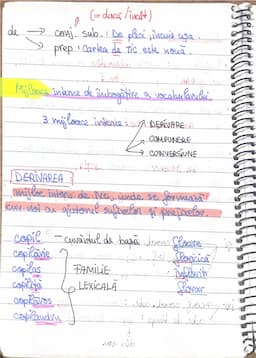 (= dacă / încât)
de → conj. sub.: De pleci, încuie ușa.
→ prep.: Cartea de TIC este nouă.
Mijloace interne de îmbogățire a vocabularului
3 mijloace interne:
→ DERIVARE
→ COMPUNERE
→ CONVERSIUNE
DERIVAREA
mijloc intern de îmb. unde se formează
cuv. noi cu ajutorul sufixelor și prefixelor.
copil - cuvântul de bază floare
copilărie floricică
copilaș FAMILIE înflorit
copiliță LEXICALĂ florar
copilăros
copilandru